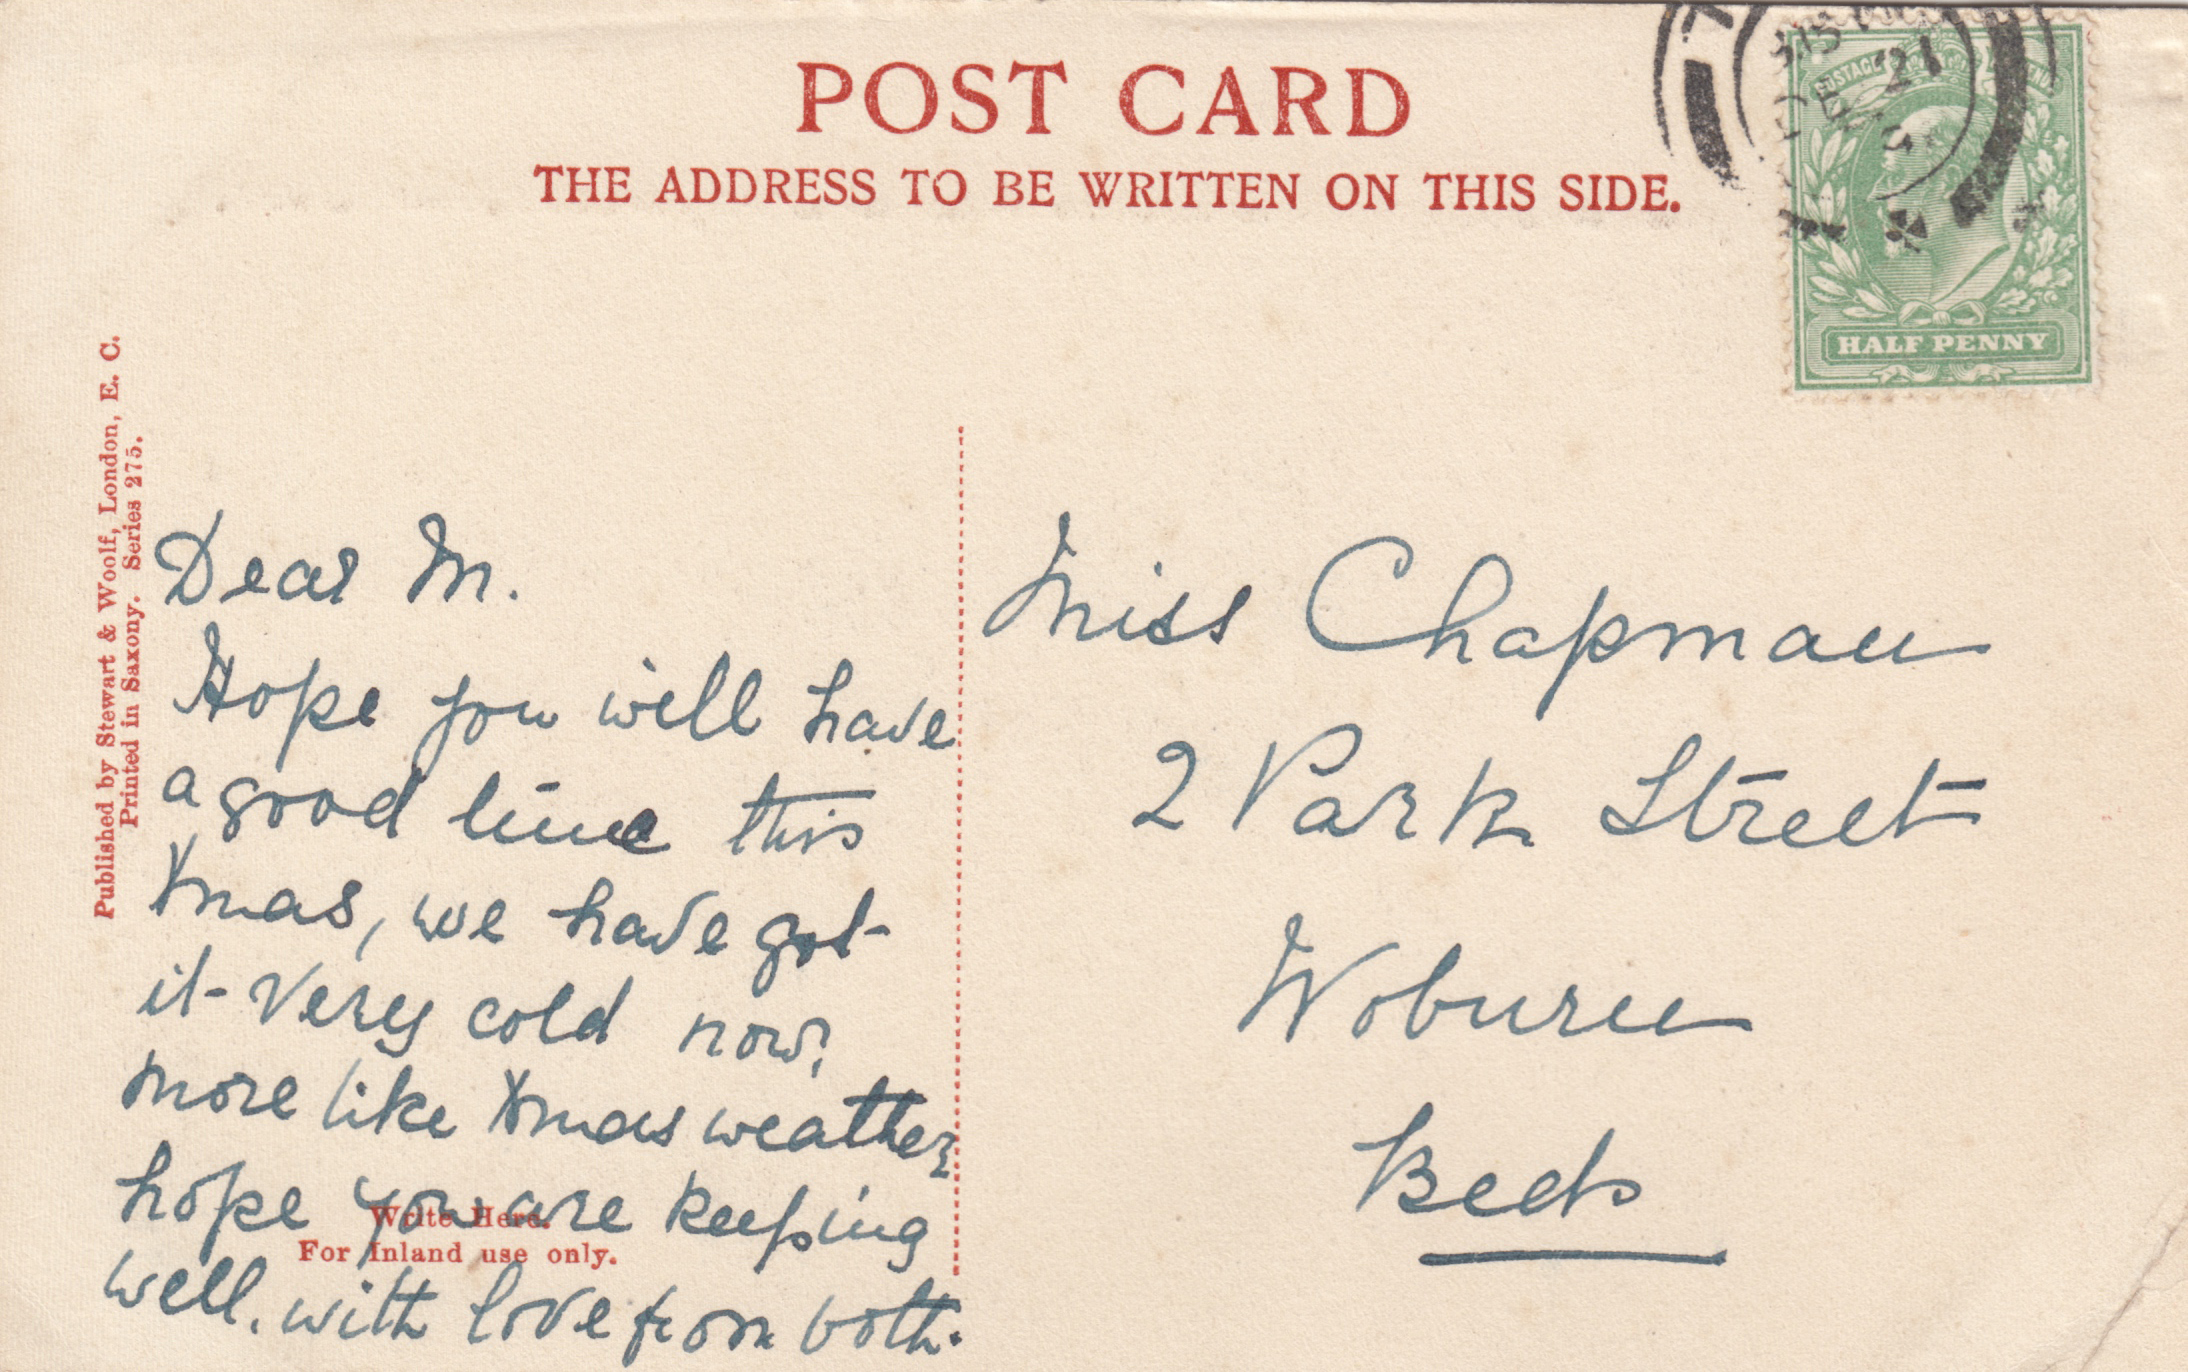 POST CARD
THE ADDRESS TO BE WRITTEN ON THIS SIDE.
POSTAGE
HALF PENNY
21
DE
Published by Stewart & Woolf, London, E. C.
Printed in Saxony. Series 275.
Dear M.
Hope you will have
a good time this
Xmas, we have got
it very cold now,
more like Xmas weather
hope you are keeping
well. with love from both.
Write Here.
For Inland use only.
Miss Chapman
2 Park Street
Woburn
Beds